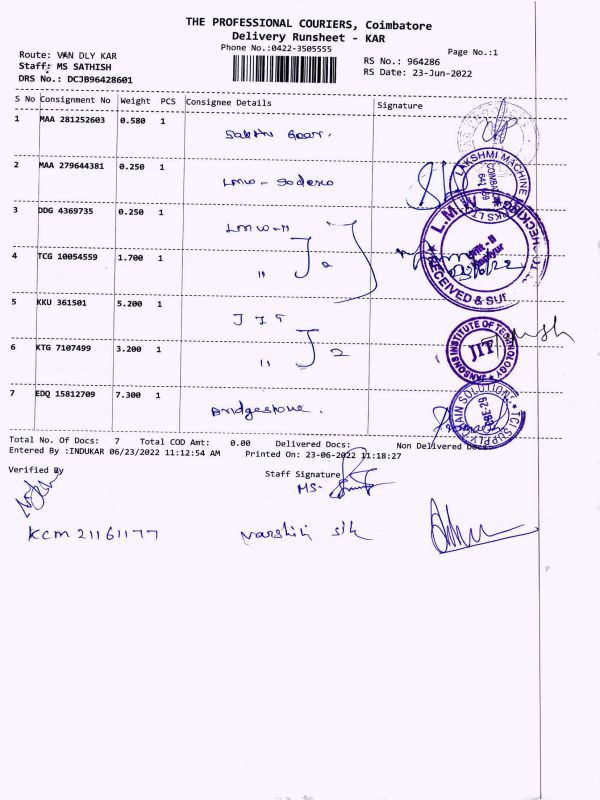 THE PROFESSIONAL COURIERS, Coimbatore
Delivery Runsheet - KAR
Phone No.:0422-3505555
Page No.:1
Route: VAN DLY KAR
Staff: MS SATHISH
DRS No.: DCJB96428601
RS No.: 964286
RS Date: 23-Jun-2022
S No Consignment No Weight PCS Consignee Details Signature
1 MAA 281252603 0.580 1 Sakthi Gear.
2 MAA 279644381 0.250 1 LMW - Sodexo
3 DDG 4369735 0.250 1 LMW-II
4 TCG 10054559 1.700 1 " J 2
5 KKU 361501 5.200 1 JIT
6 KTG 7107499 3.200 1 " J 2
7 EDQ 15812709 7.300 1 Bridgestone.
LAKSHMI MACHINE
COIMBATORE
641
L.M.W
RECEIVED &
JANSONS INSTITUTE OF TECHNOLOGY
JIT
TCI SUPPLY CHAIN SOLUTION
Total No. Of Docs: 7 Total COD Amt: 0.00 Delivered Docs: Non Delivered Docs:
Entered By :INDUKAR 06/23/2022 11:12:54 AM Printed On: 23-06-2022 11:18:27
Verified By
Staff Signature
MS-
KCM 21161177 Varshik silk